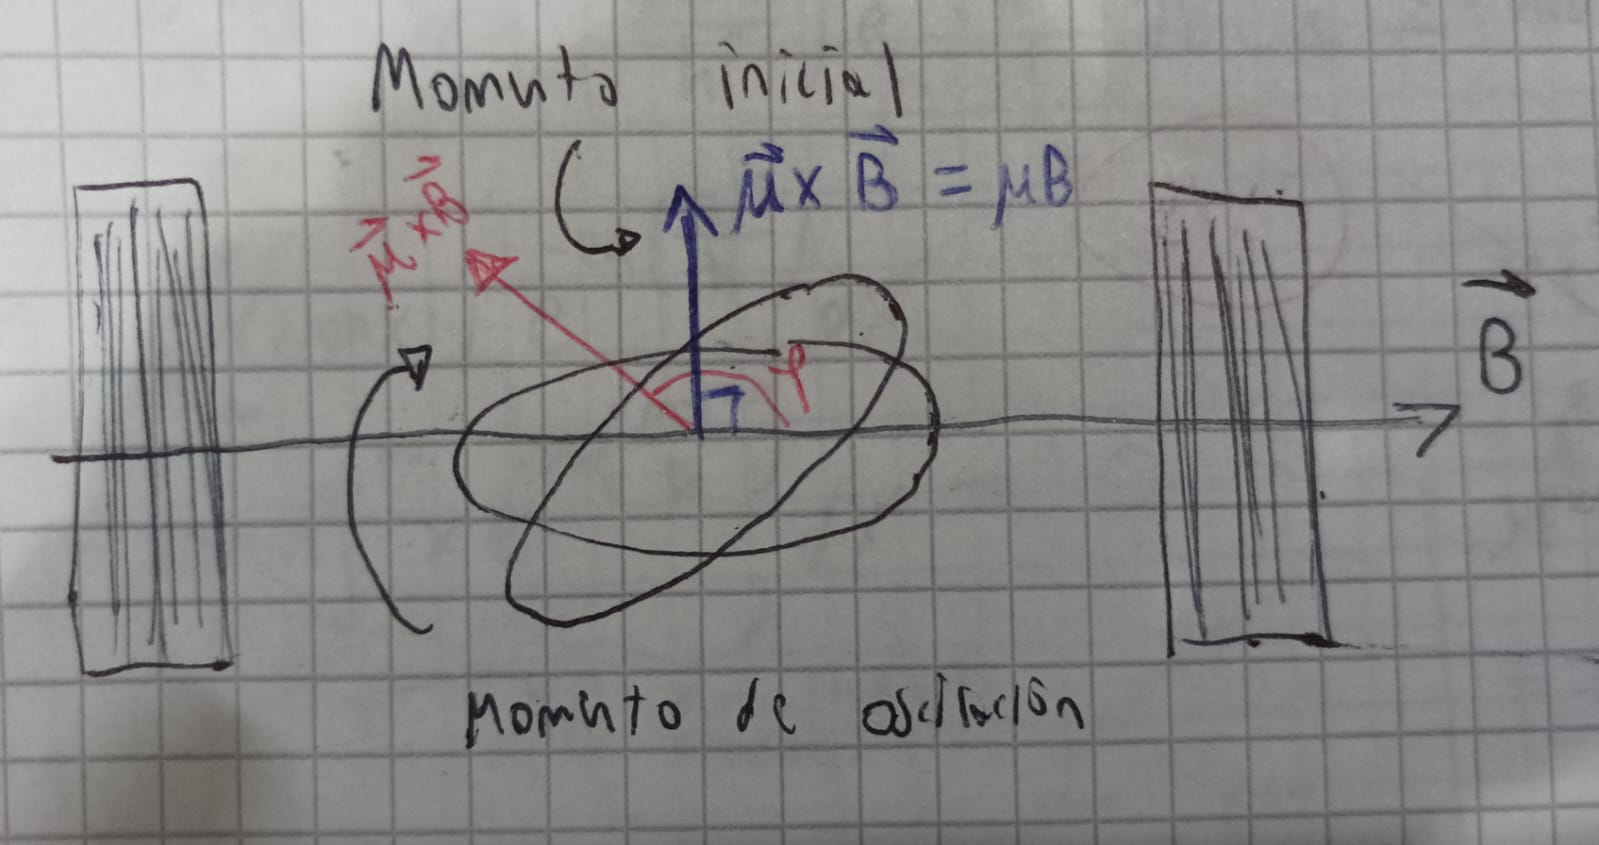 Momento inicial
μ⃗ x B⃗ = μB
μ⃗ x B⃗
φ
B⃗
Momento de oscilación